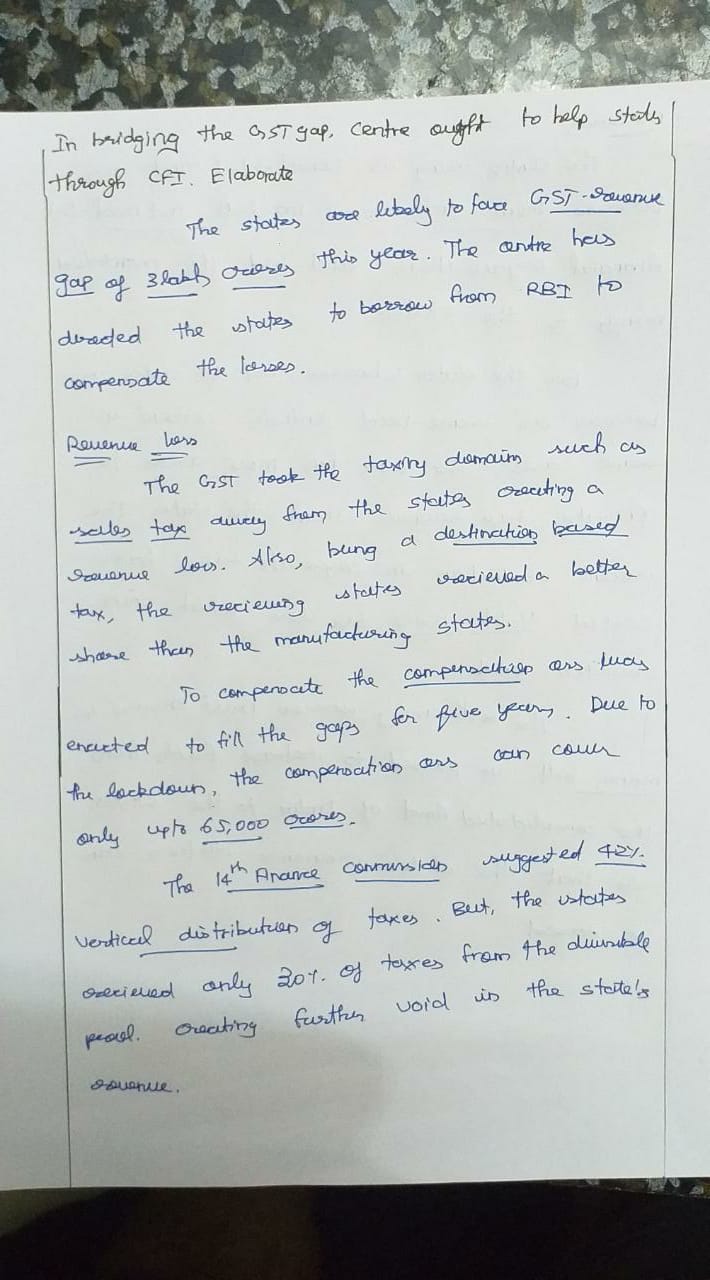 In bridging the GST gap, Centre ought to help states
through CFI. Elaborate
The states are likely to face GST-revenue
gap of 3 lakh crores this year. The centre has
directed the states to borrow from RBI to
compensate the losses.
Revenue loss
The GST took the taxing domains such as
sales tax away from the states creating a
revenue loss. Also, being a destination based
tax, the recieving states recieved a better
share than the manufacturing states.
To compensate the compensation cess was
enacted to fill the gaps for five years. Due to
the lockdown, the compensation cess can cover
only upto 65,000 crores.
The 14th Finance Commission suggested 42%
vertical distribution of taxes. But, the states
recieved only 30% of taxes from the divisible
pool. Creating further void in the state's
revenue.